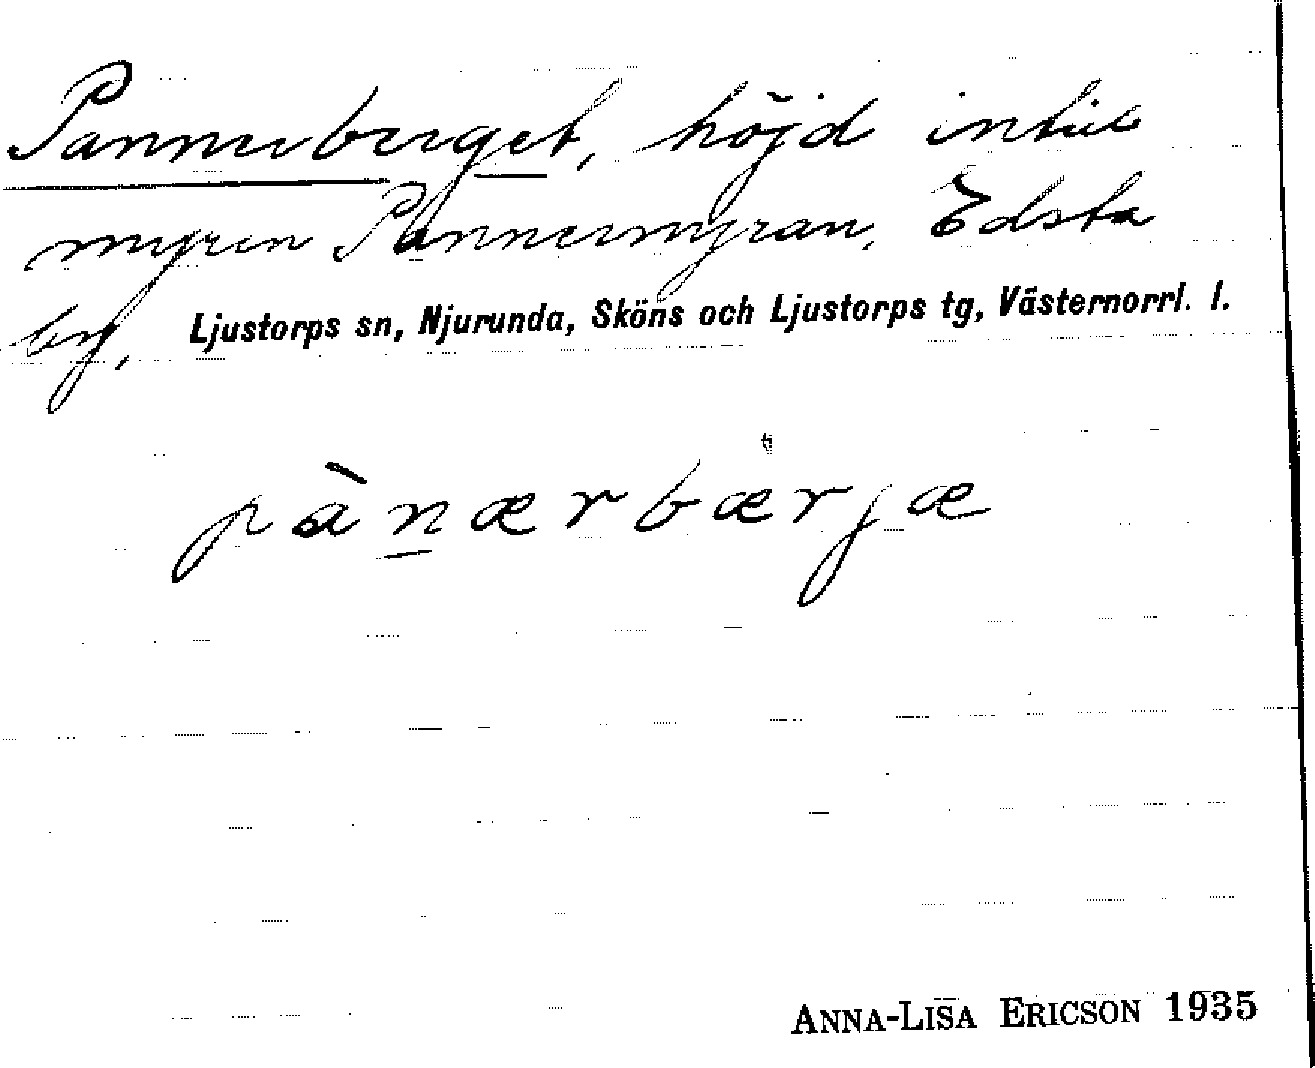 Pannerberget, höjd intill
myren Pannermyran, Edsta
by, Ljustorps sn, Njurunda, Sköns och Ljustorps tg, Västernorrl. l.
pànærbærjæ
ANNA-LISA ERICSON 1935